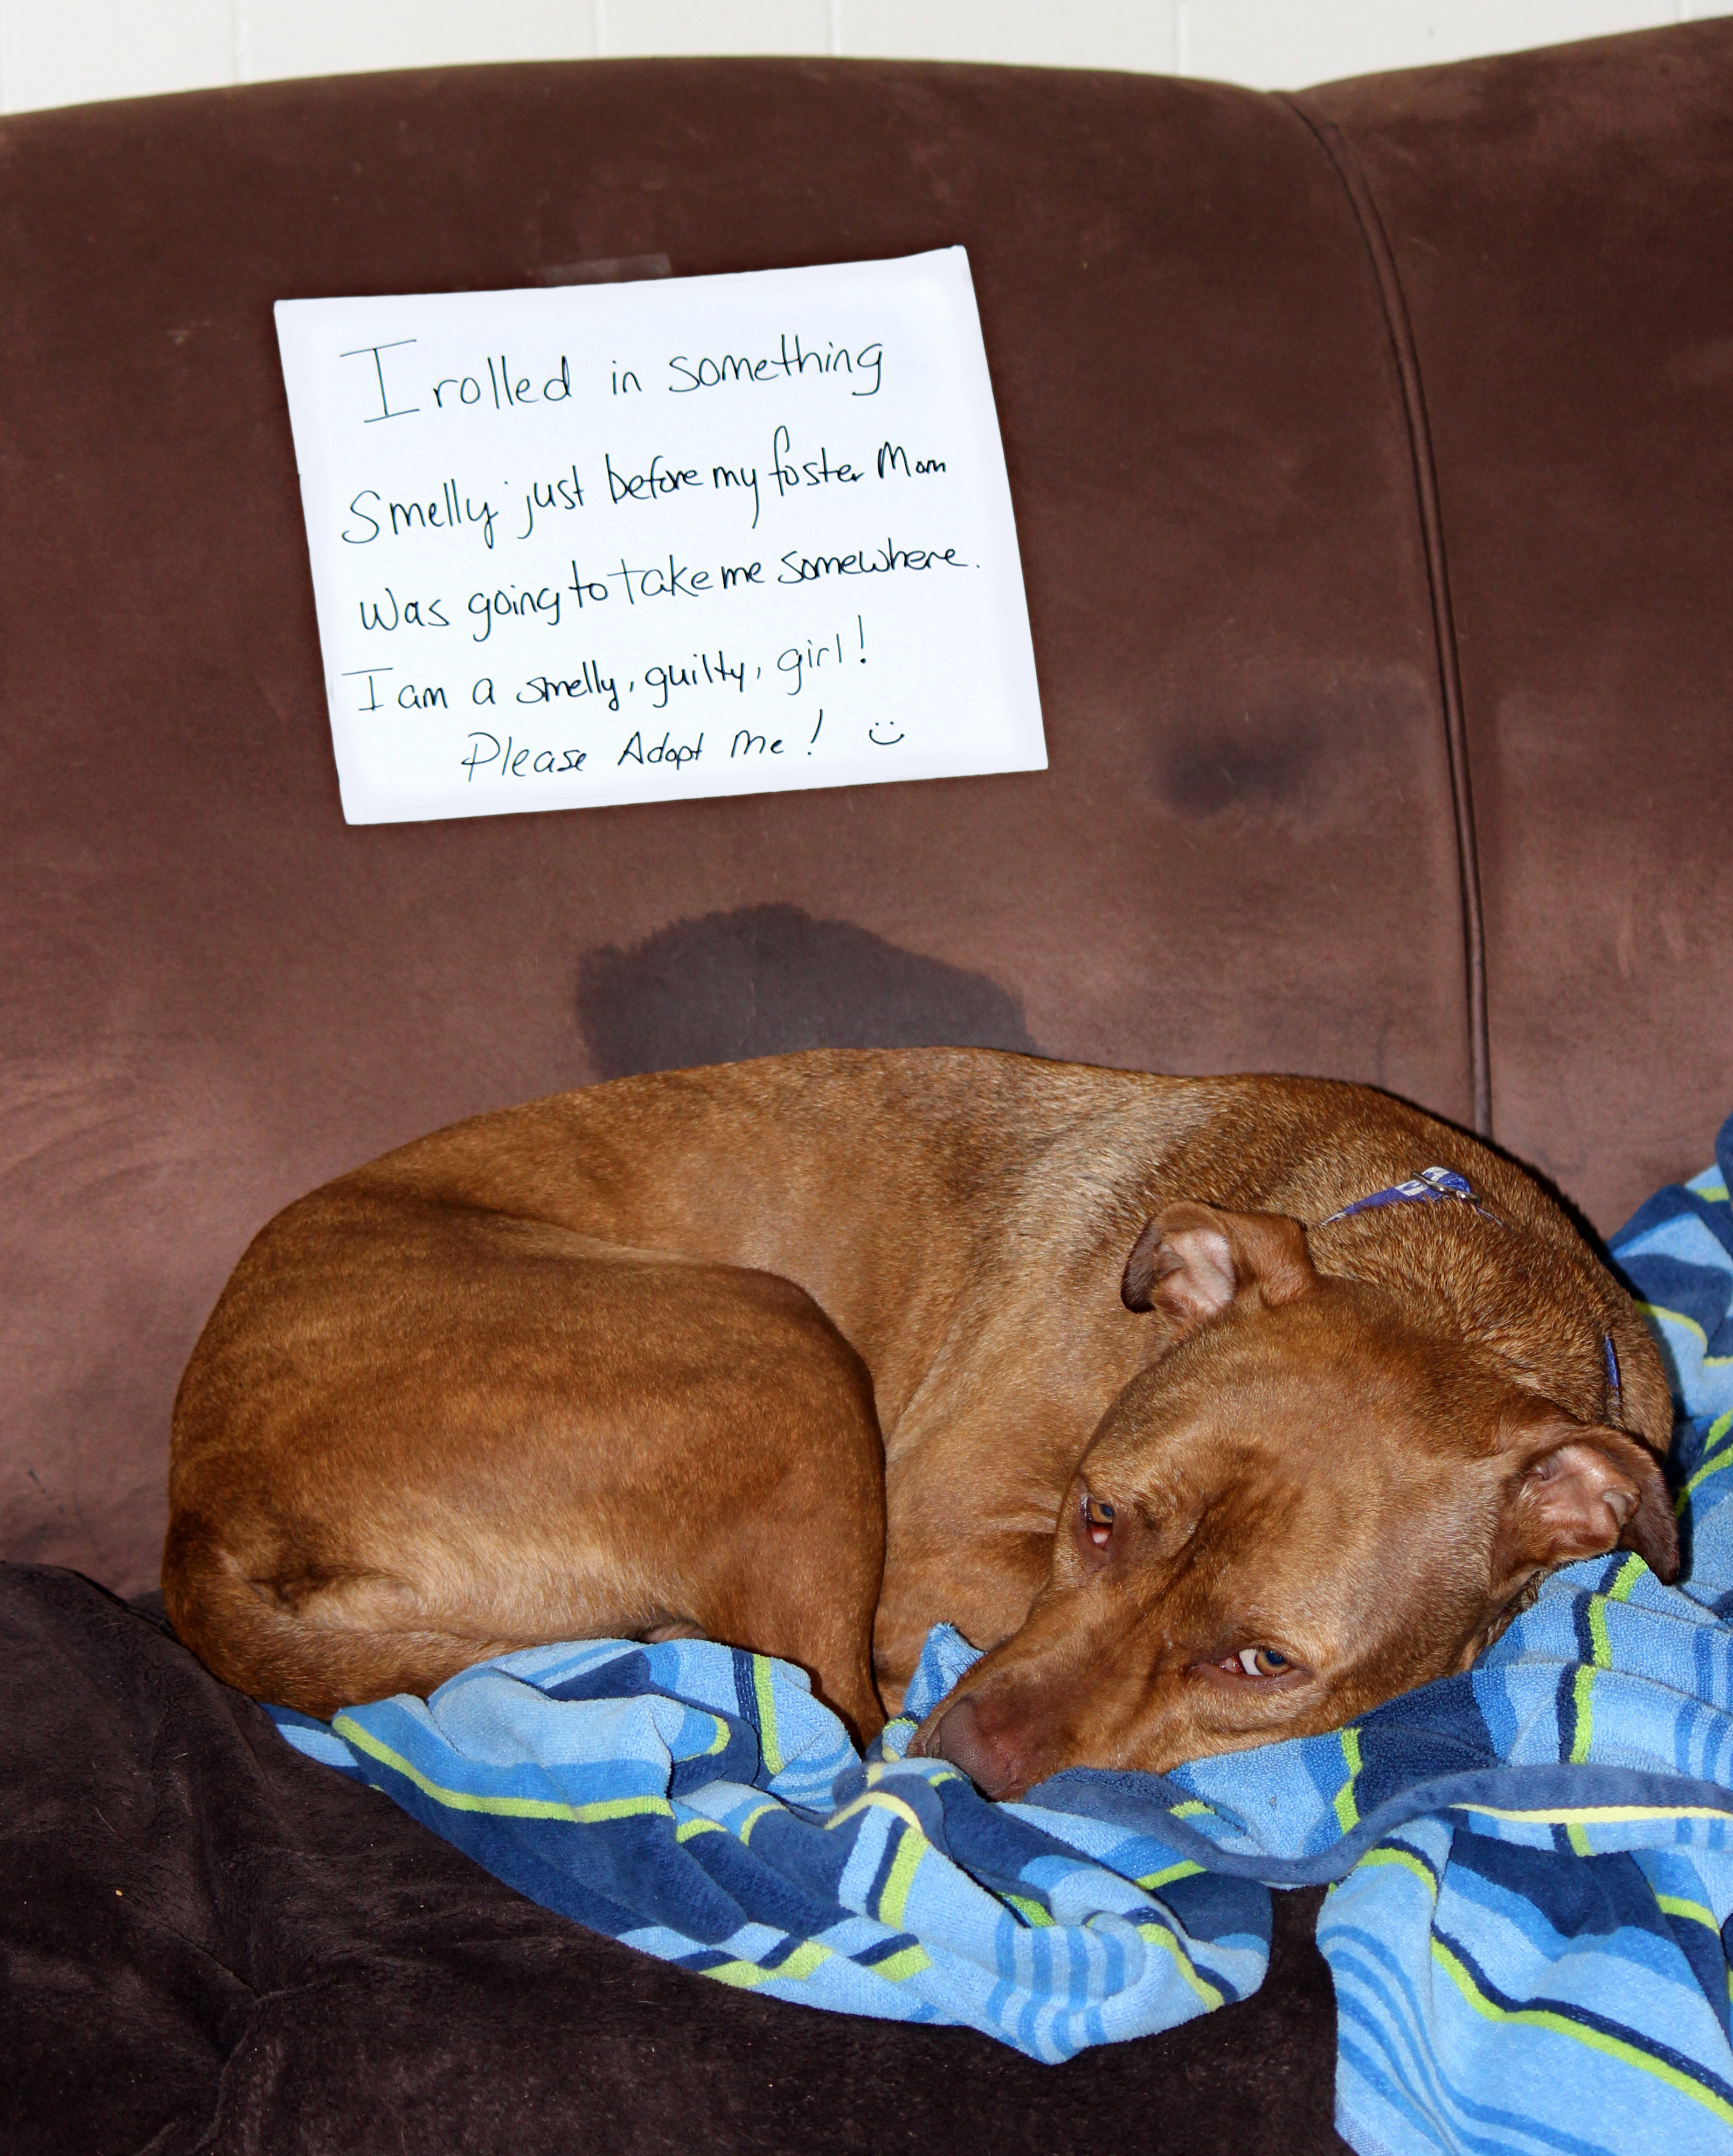 I rolled in something
Smelly just before my foster Mom
was going to take me somewhere.
I am a smelly, guilty, girl!
Please Adopt Me! :)